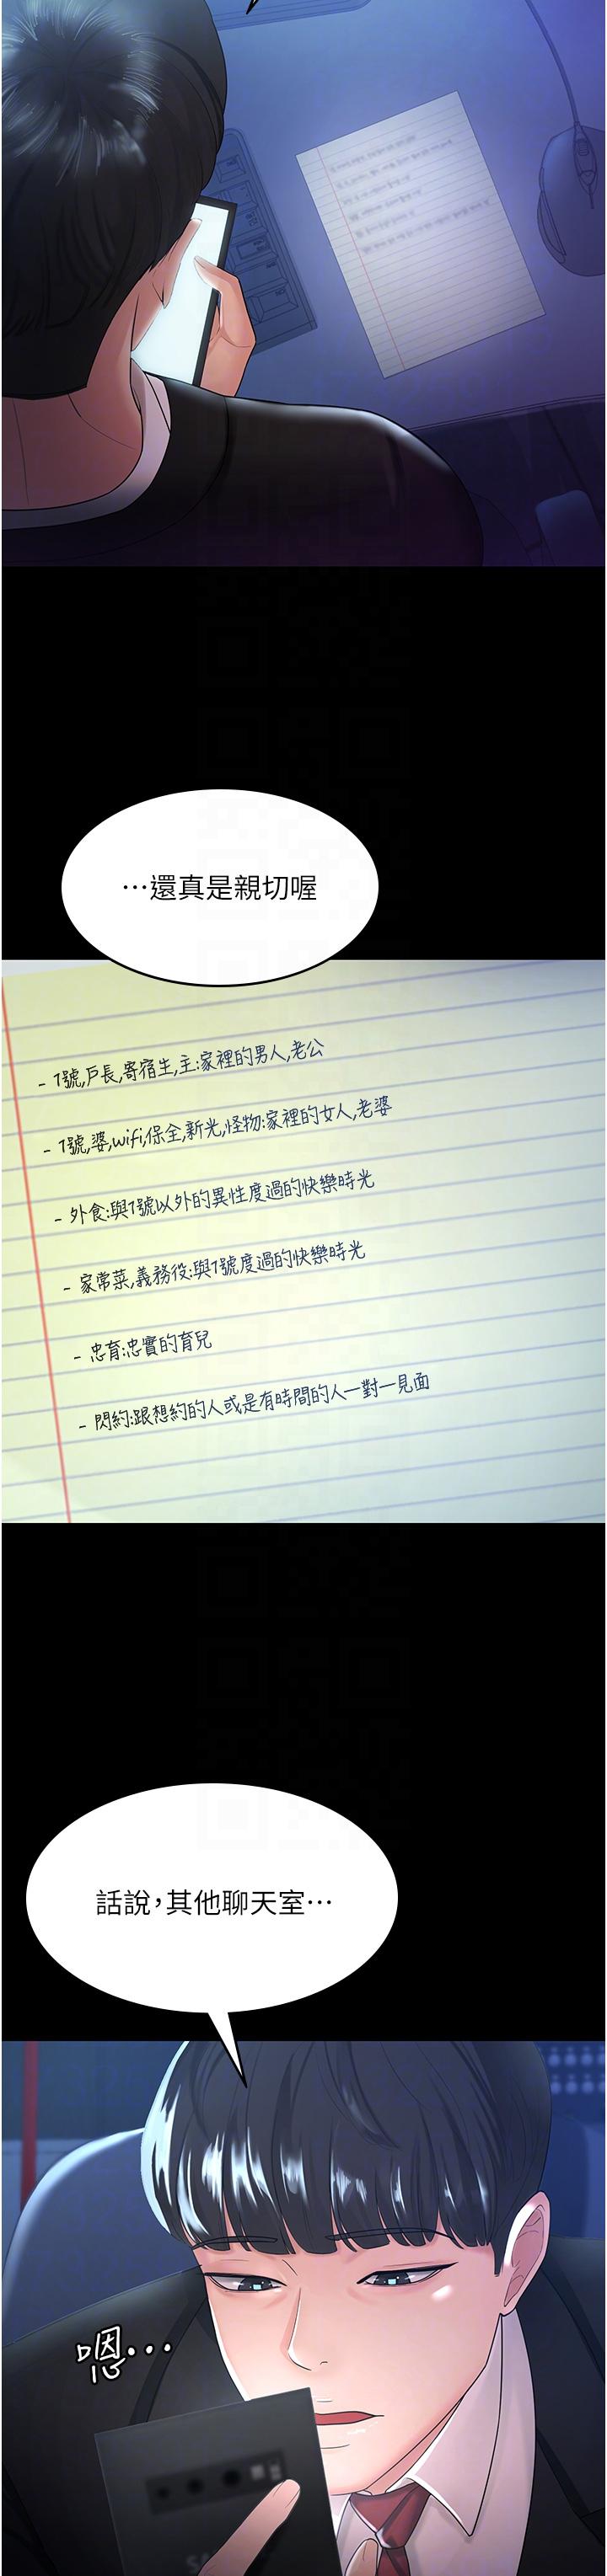 …還真是親切喔
- 1號,戶長,寄宿生,主:家裡的男人,老公
- 1號,婆,wifi,保全,新光,怪物:家裡的女人,老婆
- 外食:與1號以外的異性度過的快樂時光
- 家常菜,義務役:與1號度過的快樂時光
- 忠育:忠實的育兒
- 閃約:跟想約的人或是有時間的人一對一見面
話說,其他聊天室…
嗯…